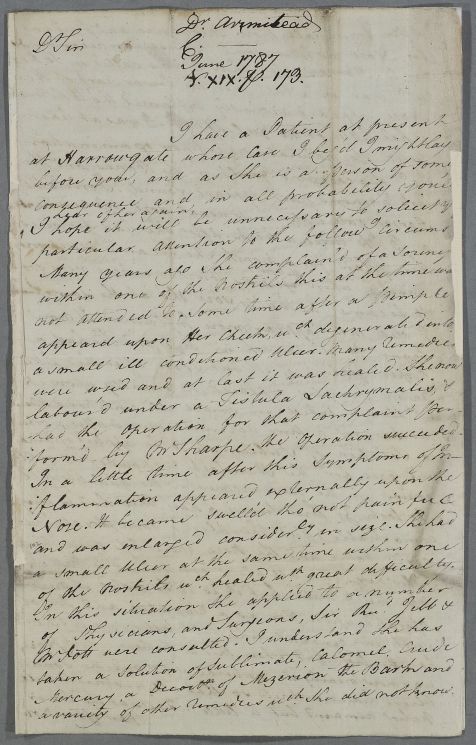 Dr. Armitead
Dr Sir
C.
June 1787
V. XIX. p. 173.
I have a Patient at present
at Harrowgate whose Case I beg'd I might lay
before you, and as she is a person of some
consequence and in all probability you'l
hear of her again,
I hope it will be unnecessary to solicit yr
particular attention to the follow.g Circums
Many years ago she complain'd of a soreness
within one of the Nostrils this at the time was
not attended to. Some time after a Pimple
appeard upon Her Cheek, wch degenerated into
a small ill conditioned Ulcer. Many remedies
were used and at last it was healed. She now
labour'd under a Fistula Lachrymalis, &
had the operation for that complaint per-
form'd by Mr Sharpe. the operation succeeded
In a little time after this Symptoms of In-
flammation appeared externally upon the
Nose. It became swell'd tho' not painful
and was enlarged considerly in size. She had
a small Ulcer at the same time within one
of the Nostrils wch healed wth great difficulty.
In this situation she applied to a number
of Physicians, and Surgeons, Sir Rd Jebb &
Mr Pott were consulted. I understand she has
taken a Solution of Sublimate, Calomel, Crude
Mercury, a Decoctn of Mezereon the Barks and
a variety of other remedies wch she did not know.